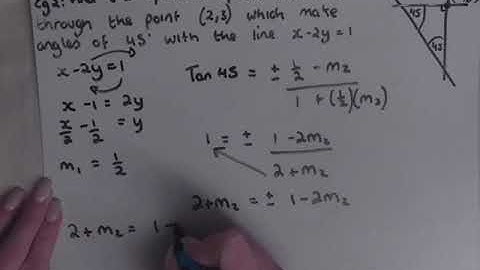 through the point (2,3) which make
angles of 45° with the line x-2y=1
x-2y=1
x-1=2y
x/2-1/2=y
m₁=1/2
Tan 45 = ± 1/2-m₂ / 1+(1/2)(m₂)
1 = ± 1-2m₂ / 2+m₂
2+m₂ = ± 1-2m₂
2+m₂ = 1-
45
45